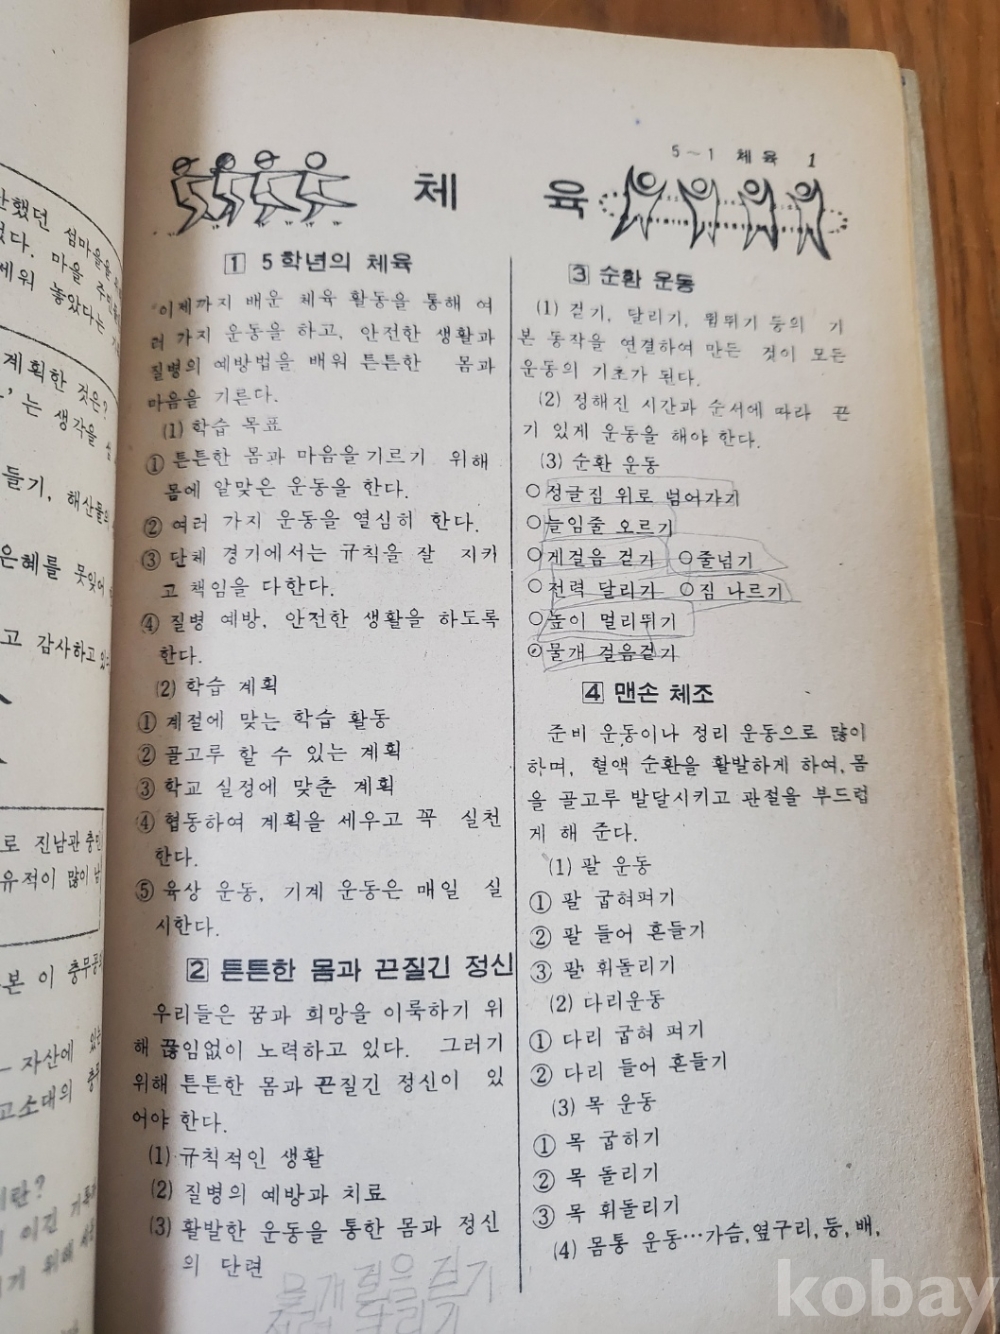 난했던 섬마을을
었다. 마을 주민
세워 놓았다는
계획한 것은?
는 생각을
들기, 해산물의
은혜를 못잊어
고 감사하고 있
로 진남관 충민
유적이 많이 남
본 이 충무공의
자산에 있는
고소대의 충무
이란?
이긴 기록
기 위해
5~1 체육 1
체 육
1 5학년의 체육
이제까지 배운 체육 활동을 통해 여
러 가지 운동을 하고, 안전한 생활과
질병의 예방법을 배워 튼튼한 몸과
마음을 기른다.
(1) 학습 목표
① 튼튼한 몸과 마음을 기르기 위해
몸에 알맞은 운동을 한다.
② 여러 가지 운동을 열심히 한다.
③ 단체 경기에서는 규칙을 잘 지키
고 책임을 다한다.
④ 질병 예방, 안전한 생활을 하도록
한다.
(2) 학습 계획
① 계절에 맞는 학습 활동
② 골고루 할 수 있는 계획
③ 학교 실정에 맞춘 계획
④ 협동하여 계획을 세우고 꼭 실천
한다.
⑤ 육상 운동, 기계 운동은 매일 실
시한다.
2 튼튼한 몸과 끈질긴 정신
우리들은 꿈과 희망을 이룩하기 위
해 끊임없이 노력하고 있다. 그러기
위해 튼튼한 몸과 끈질긴 정신이 있
어야 한다.
(1) 규칙적인 생활
(2) 질병의 예방과 치료
(3) 활발한 운동을 통한 몸과 정신
의 단련
물개 걸음 걷기
전력 달리기
3 순환 운동
(1) 걷기, 달리기, 뜀뛰기 등의 기
본 동작을 연결하여 만든 것이 모든
운동의 기초가 된다.
(2) 정해진 시간과 순서에 따라 끈
기 있게 운동을 해야 한다.
(3) 순환 운동
○정글짐 위로 넘어가기
○늘임줄 오르기
○게걸음 걷기 ○줄넘기
○전력 달리기 ○짐 나르기
○높이 멀리뛰기
○물개 걸음걷기
4 맨손 체조
준비 운동이나 정리 운동으로 많이
하며, 혈액 순환을 활발하게 하여, 몸
을 골고루 발달시키고 관절을 부드럽
게 해 준다.
(1) 팔 운동
① 팔 굽혀펴기
② 팔 들어 흔들기
③ 팔 휘돌리기
(2) 다리운동
① 다리 굽혀 펴기
② 다리 들어 흔들기
(3) 목 운동
① 목 굽히기
② 목 돌리기
③ 목 휘돌리기
(4) 몸통 운동…가슴, 옆구리, 등, 배,
kobay